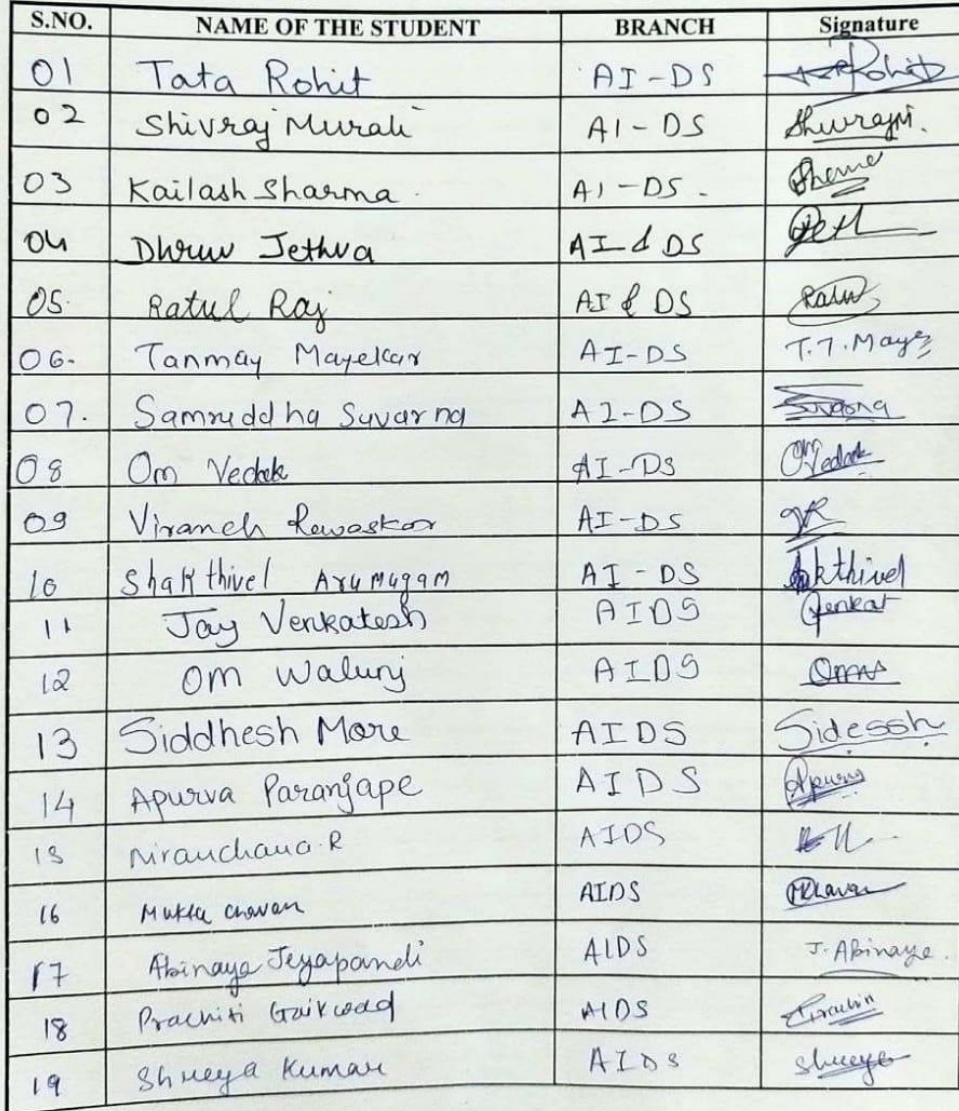 S.NO. NAME OF THE STUDENT BRANCH Signature
01 Tata Rohit AI-DS Rohit
02 Shivraj Murali AI-DS Shivrajm.
03 Kailash Sharma. AI-DS.
04 Dhruv Jethva AI & DS Jeth
05. Ratul Raj AI & DS Ratul
06- Tanmay Mayekar AI-DS T.T.Maye
07. Samruddha Suvarna AI-DS Suvarna
08 Om Vedak AI-DS Om Vedak
09 Viranch Rewaskar AI-DS VR
10 Shakthivel Arumugam AI-DS
11 Jay Venkatesh AIDS Venkat
12 Om Walunj AIDS Om
13 Siddhesh More AIDS Sidessh
14 Apurva Paranjape AIDS Apurva
15 Niranchana.R AIDS
16 Mukta Chavan AIDS MChavan
17 Abinaya Jeyapandi AIDS J.Abinaya.
18 Prachiti Gaikwad AIDS
19 Shreya Kumar AIDS Shreya